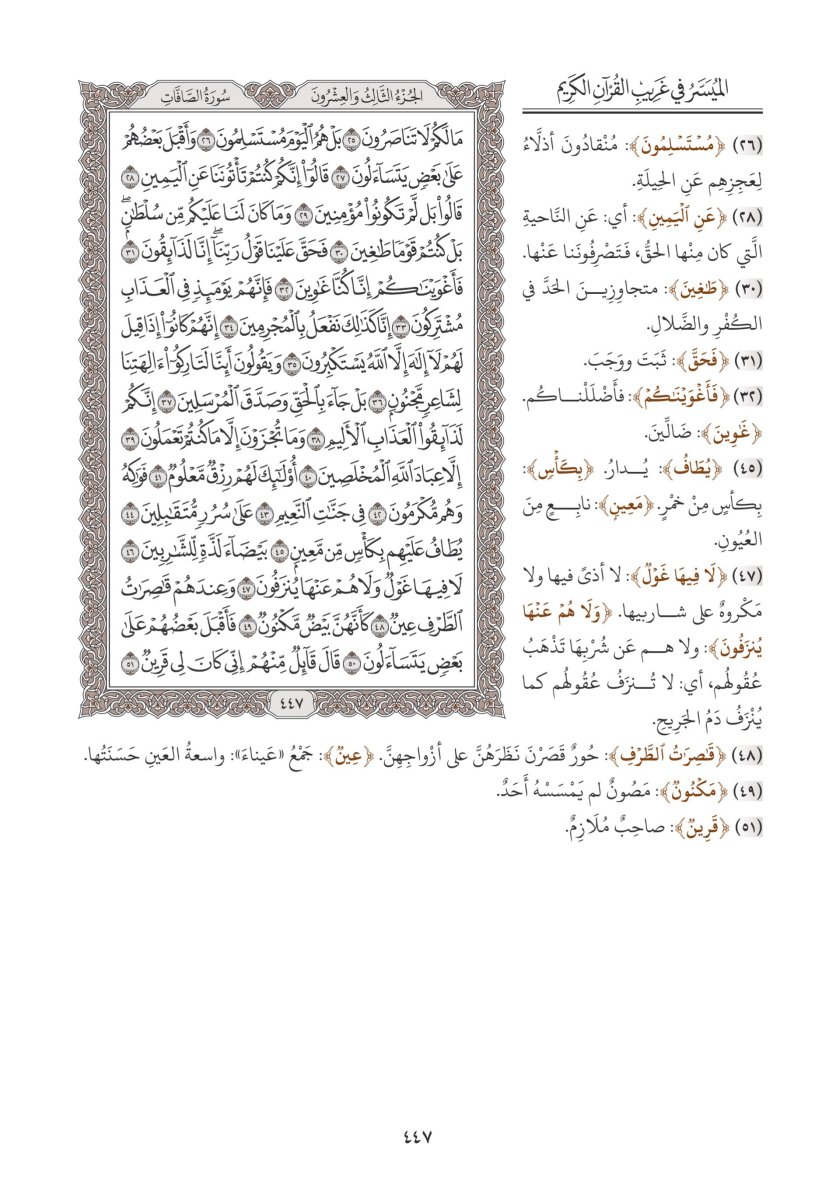 الميُسَّرُ في غَرِيبِ القُرْآنِ الكَرِيمِ
(٢٦) ﴿مُسْتَسْلِمُونَ﴾: مُنْقادُونَ أذلَّاءُ
لِعَجزِهِم عَنِ الحيلَةِ.
(٢٨) ﴿عَنِ ٱلْيَمِينِ﴾: أي: عَنِ النَّاحيةِ
الَّتي كان مِنْها الحقُّ، فَتَصْرِفُونَنا عَنْها.
(٣٠) ﴿طَٰغِينَ﴾: متجاوِزِينَ الحَدَّ في
الكُفْرِ والضَّلالِ.
(٣١) ﴿فَحَقَّ﴾: ثَبَتَ ووَجَبَ.
(٣٢) ﴿فَأَغْوَيْنَٰكُمْ﴾: فأَضْلَلْناكُم.
﴿غَٰوِينَ﴾: ضَالِّينَ.
(٤٥) ﴿يُطَافُ﴾: يُدارُ. ﴿بِكَأْسٍ﴾:
بِكأسٍ مِنْ خَمْرٍ. ﴿مَعِينٍ﴾: نابِعٍ مِنَ
العُيُونِ.
(٤٧) ﴿لَا فِيهَا غَوْلٌ﴾: لا أذىً فيها ولا
مَكْروهٌ على شاربيها. ﴿وَلَا هُمْ عَنْهَا
يُنزَفُونَ﴾: ولا هم عَن شُرْبِها تَذْهَبُ
عُقُولُهُم، أي: لا تُنزَفُ عُقُولُهم كما
يُنْزَفُ دَمُ الجَرِيحِ.
سُورَةُ الصَّافَّاتِ
الجُزْءُ الثَّالِثُ وَالعِشْرُونَ
مَالَكُمْ لَا تَنَاصَرُونَ ٢٥ بَلْ هُمُ ٱلْيَوْمَ مُسْتَسْلِمُونَ ٢٦ وَأَقْبَلَ بَعْضُهُمْ
عَلَىٰ بَعْضٍ يَتَسَآءَلُونَ ٢٧ قَالُوٓا۟ إِنَّكُمْ كُنتُمْ تَأْتُونَنَا عَنِ ٱلْيَمِينِ ٢٨
قَالُوا۟ بَل لَّمْ تَكُونُوا۟ مُؤْمِنِينَ ٢٩ وَمَا كَانَ لَنَا عَلَيْكُم مِّن سُلْطَٰنٍۭ ۖ
بَلْ كُنتُمْ قَوْمًا طَٰغِينَ ٣٠ فَحَقَّ عَلَيْنَا قَوْلُ رَبِّنَآ ۖ إِنَّا لَذَآئِقُونَ ٣١
فَأَغْوَيْنَٰكُمْ إِنَّا كُنَّا غَٰوِينَ ٣٢ فَإِنَّهُمْ يَوْمَئِذٍ فِى ٱلْعَذَابِ
مُشْتَرِكُونَ ٣٣ إِنَّا كَذَٰلِكَ نَفْعَلُ بِٱلْمُجْرِمِينَ ٣٤ إِنَّهُمْ كَانُوٓا۟ إِذَا قِيلَ
لَهُمْ لَآ إِلَٰهَ إِلَّا ٱللَّهُ يَسْتَكْبِرُونَ ٣٥ وَيَقُولُونَ أَئِنَّا لَتَارِكُوٓا۟ ءَالِهَتِنَا
لِشَاعِرٍ مَّجْنُونٍۭ ٣٦ بَلْ جَآءَ بِٱلْحَقِّ وَصَدَّقَ ٱلْمُرْسَلِينَ ٣٧ إِنَّكُمْ
لَذَآئِقُوا۟ ٱلْعَذَابِ ٱلْأَلِيمِ ٣٨ وَمَا تُجْزَوْنَ إِلَّا مَا كُنتُمْ تَعْمَلُونَ ٣٩
إِلَّا عِبَادَ ٱللَّهِ ٱلْمُخْلَصِينَ ٤٠ أُو۟لَٰٓئِكَ لَهُمْ رِزْقٌ مَّعْلُومٌ ٤١ فَوَٰكِهُ
وَهُم مُّكْرَمُونَ ٤٢ فِى جَنَّٰتِ ٱلنَّعِيمِ ٤٣ عَلَىٰ سُرُرٍ مُّتَقَٰبِلِينَ ٤٤
يُطَافُ عَلَيْهِم بِكَأْسٍ مِّن مَّعِينٍۭ ٤٥ بَيْضَآءَ لَذَّةٍ لِّلشَّٰرِبِينَ ٤٦
لَا فِيهَا غَوْلٌ وَلَا هُمْ عَنْهَا يُنزَفُونَ ٤٧ وَعِندَهُمْ قَٰصِرَٰتُ
ٱلطَّرْفِ عِينٌ ٤٨ كَأَنَّهُنَّ بَيْضٌ مَّكْنُونٌ ٤٩ فَأَقْبَلَ بَعْضُهُمْ عَلَىٰ
بَعْضٍ يَتَسَآءَلُونَ ٥٠ قَالَ قَآئِلٌ مِّنْهُمْ إِنِّى كَانَ لِى قَرِينٌ ٥١
٤٤٧
(٤٨) ﴿قَٰصِرَٰتُ ٱلطَّرْفِ﴾: حُورٌ قَصَرْنَ نَظَرَهُنَّ على أزْواجِهِنَّ. ﴿عِينٌ﴾: جَمْعُ «عَيناءَ»: واسعةُ العَينِ حَسَنَتُها.
(٤٩) ﴿مَكْنُونٌ﴾: مَصُونٌ لم يَمْسَسْهُ أَحَدٌ.
(٥١) ﴿قَرِينٌ﴾: صاحِبٌ مُلَازِمٌ.
٤٤٧